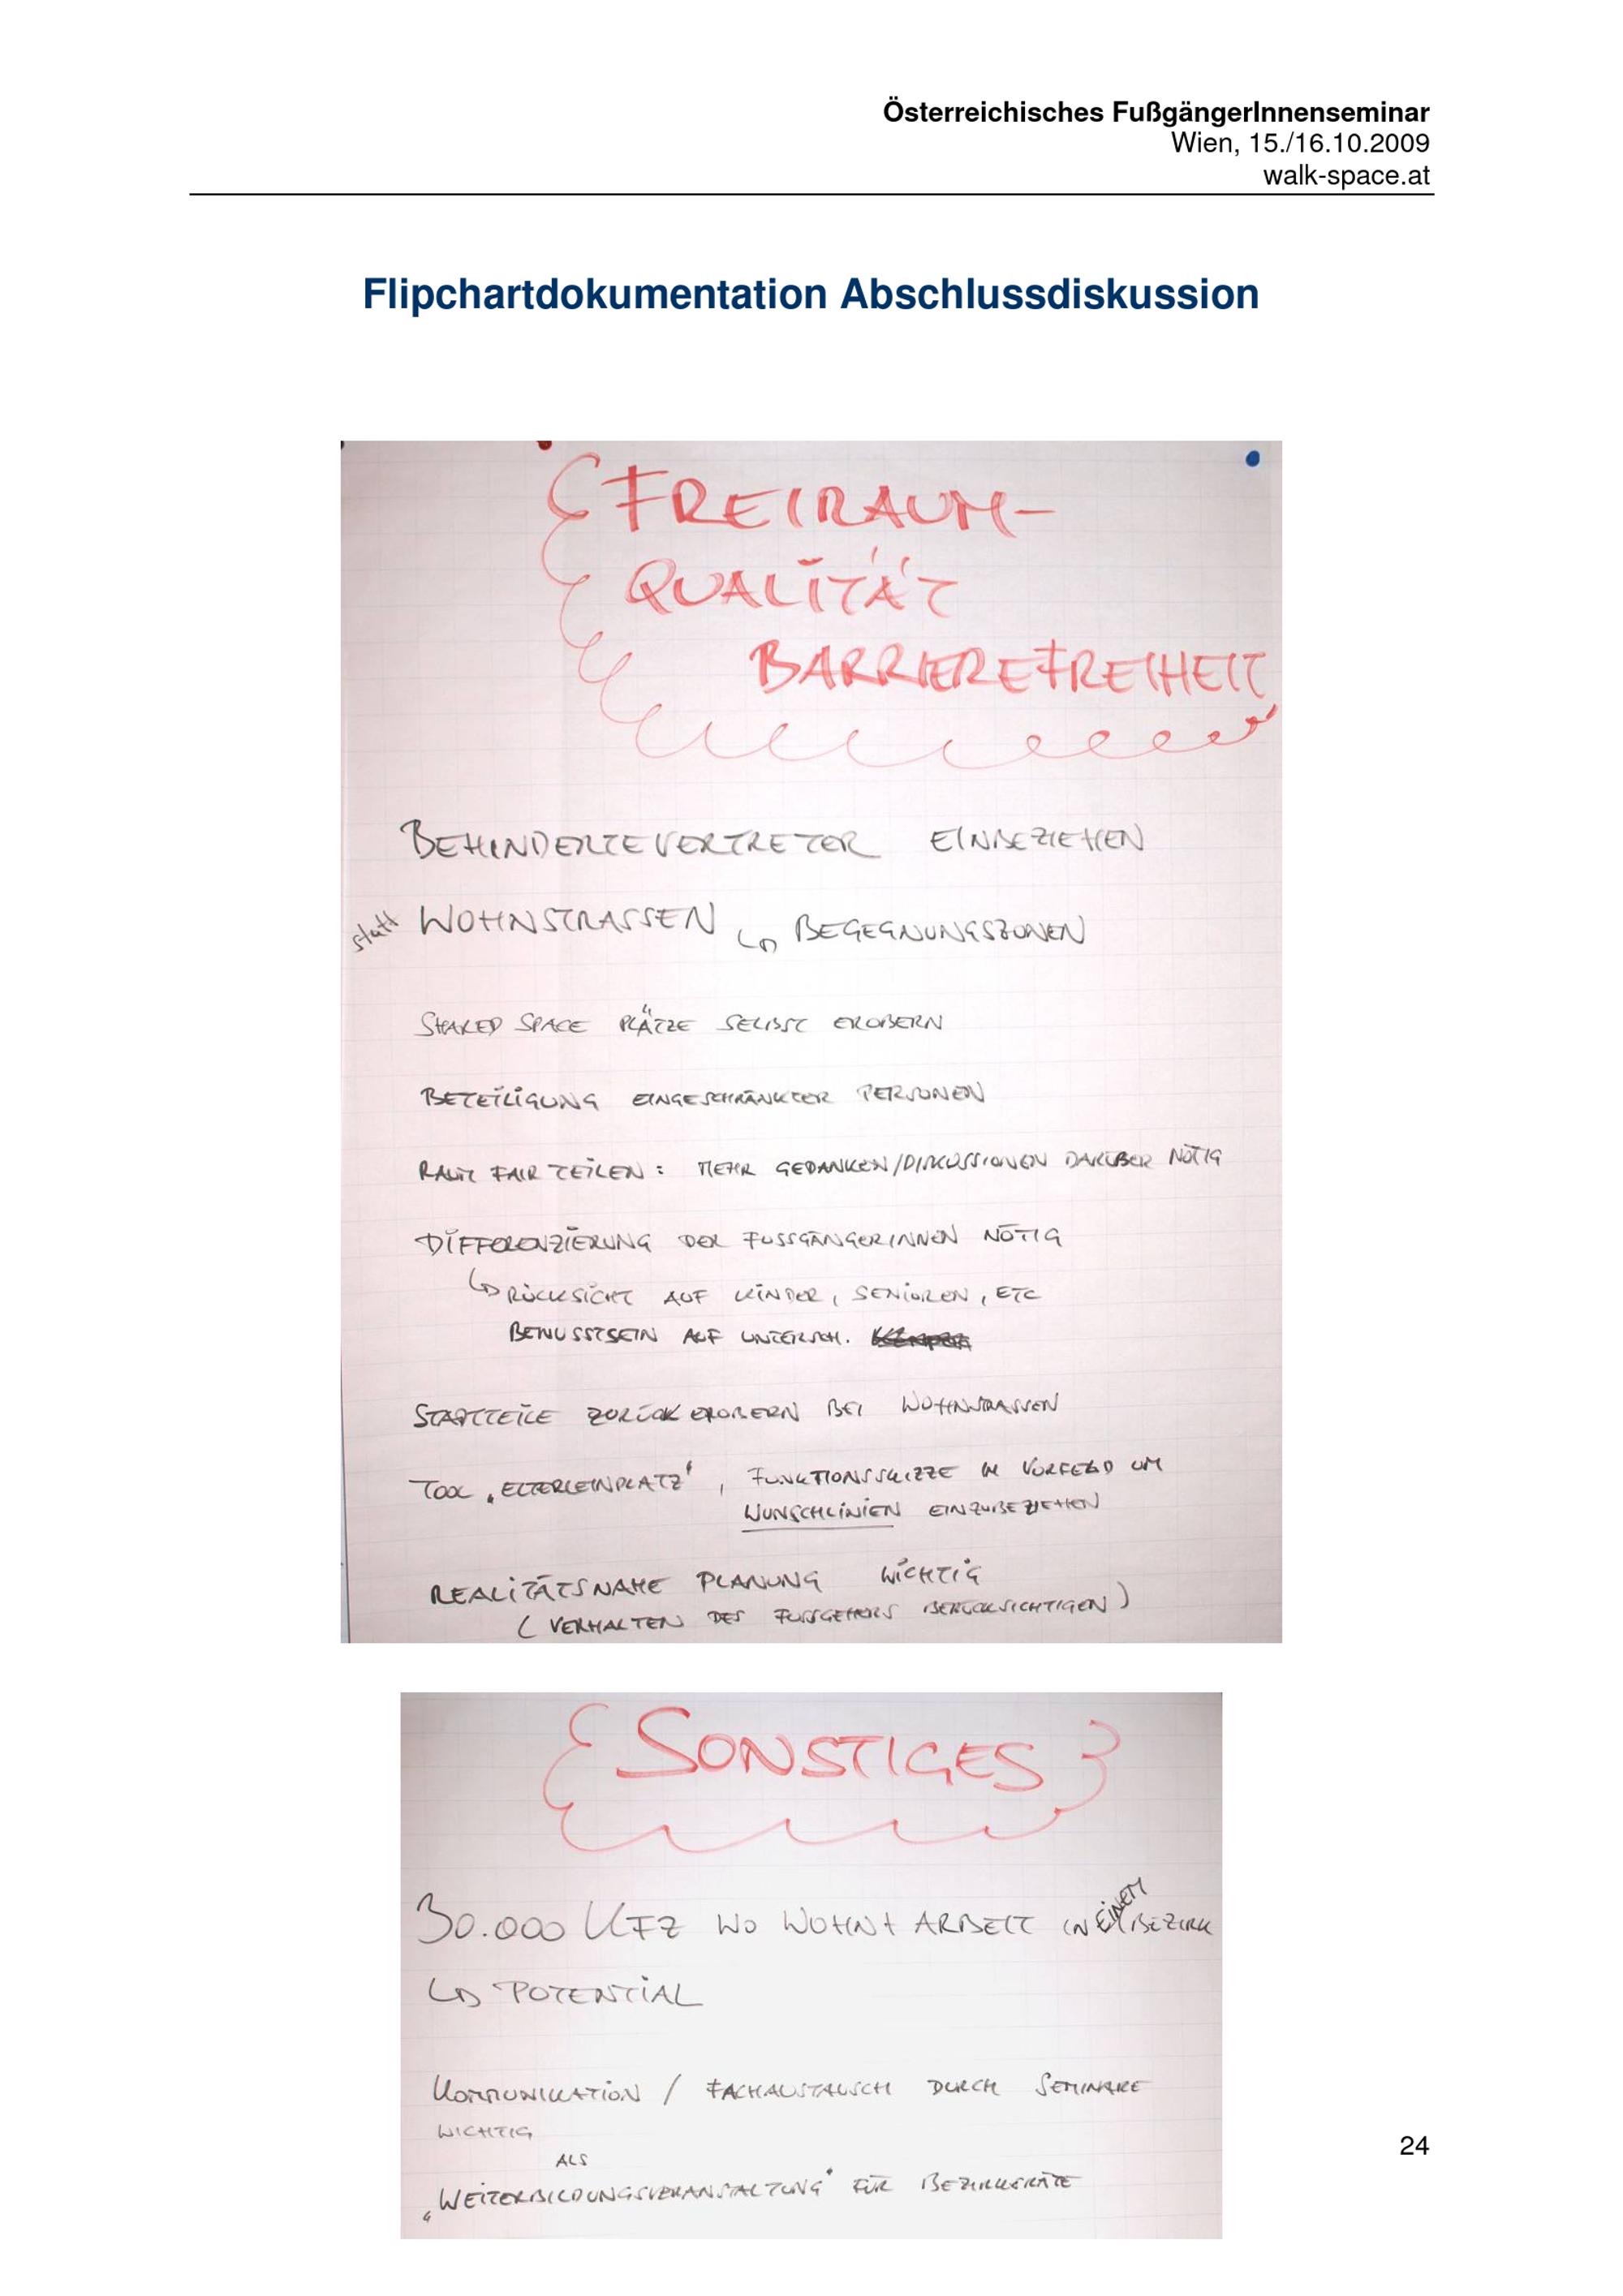 Österreichisches FußgängerInnenseminar
Wien, 15./16.10.2009
walk-space.at
Flipchartdokumentation Abschlussdiskussion
FREIRAUM-
QUALITÄT
BARRIEREFREIHEIT
BEHINDERTEVERTRETER EINBEZIEHEN
statt WOHNSTRASSEN ↳ BEGEGNUNGSZONEN
SHARED SPACE PLÄTZE SELBST EROBERN
BETEILIGUNG EINGESCHRÄNKTER PERSONEN
RAUM FAIR TEILEN: MEHR GEDANKEN/DISKUSSIONEN DARÜBER NÖTIG
DIFFERENZIERUNG DER FUSSGÄNGERINNEN NÖTIG
↳ RÜCKSICHT AUF KINDER, SENIOREN, ETC
BEWUSSTSEIN AUF UNTERSCH.
STADTTEILE ZURÜCKEROBERN BEI WOHNSTRASSEN
TOOL „ELTERLEINPLATZ", FUNKTIONSSKIZZE IM VORFELD UM
WUNSCHLINIEN EINZUBEZIEHEN
REALITÄTSNAHE PLANUNG WICHTIG
(VERHALTEN DES FUSSGEHERS BERÜCKSICHTIGEN)
SONSTIGES
30.000 KFZ WO WOHN + ARBEIT IN EINEM BEZIRK
↳ POTENTIAL
KOMMUNIKATION / FACHAUSTAUSCH DURCH SEMINARE
WICHTIG
ALS
„WEITERBILDUNGSVERANSTALTUNG" FÜR BEZIRKSRÄTE
24